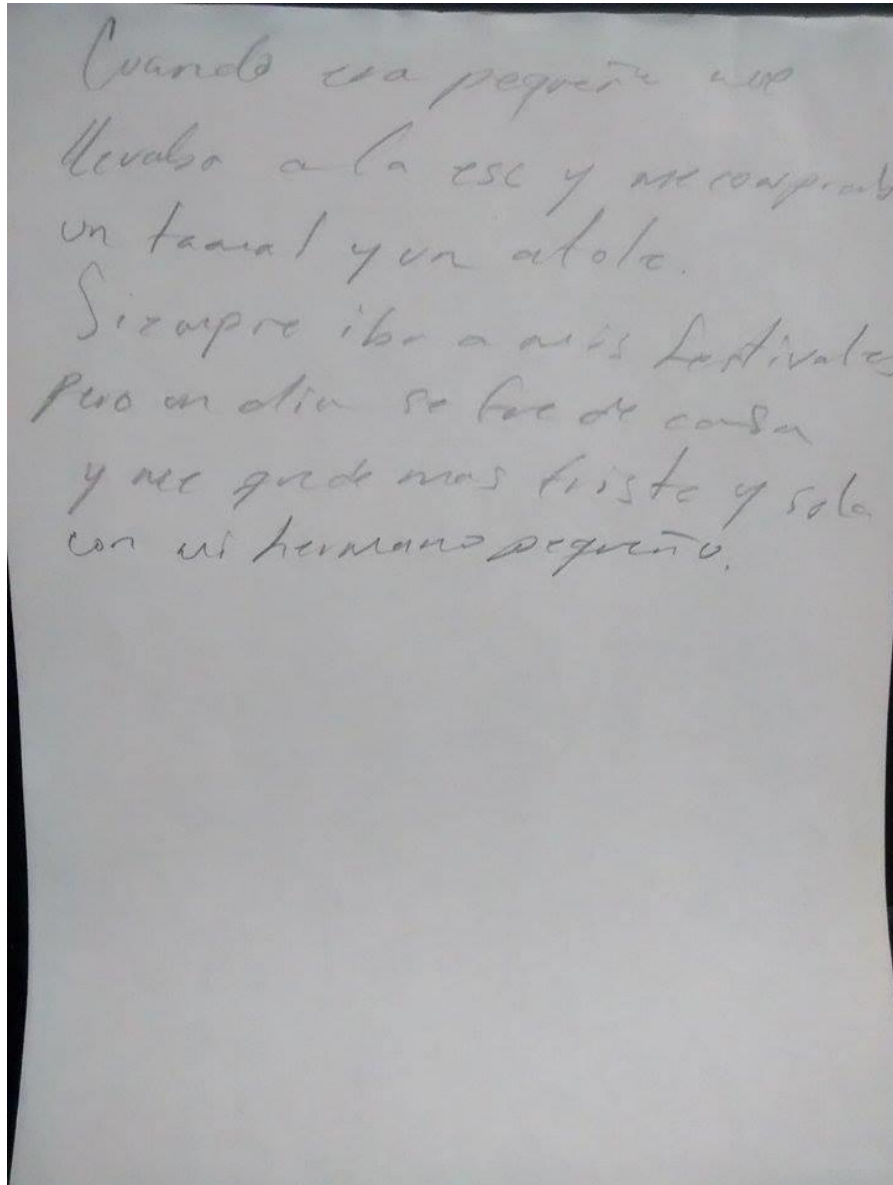 Cuando era pequeña me
llevaba a la esc y me comprab
un tamal y un atole.
Siempre iba a mis festivales
Pero un dia se fue de casa
y me quede mas triste y sola
con mi hermano pequeño.